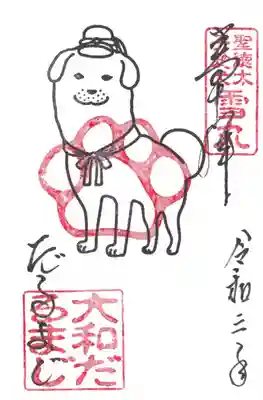 聖徳太
雪丸
令和三年
だるまじ
大和だ
るまじ